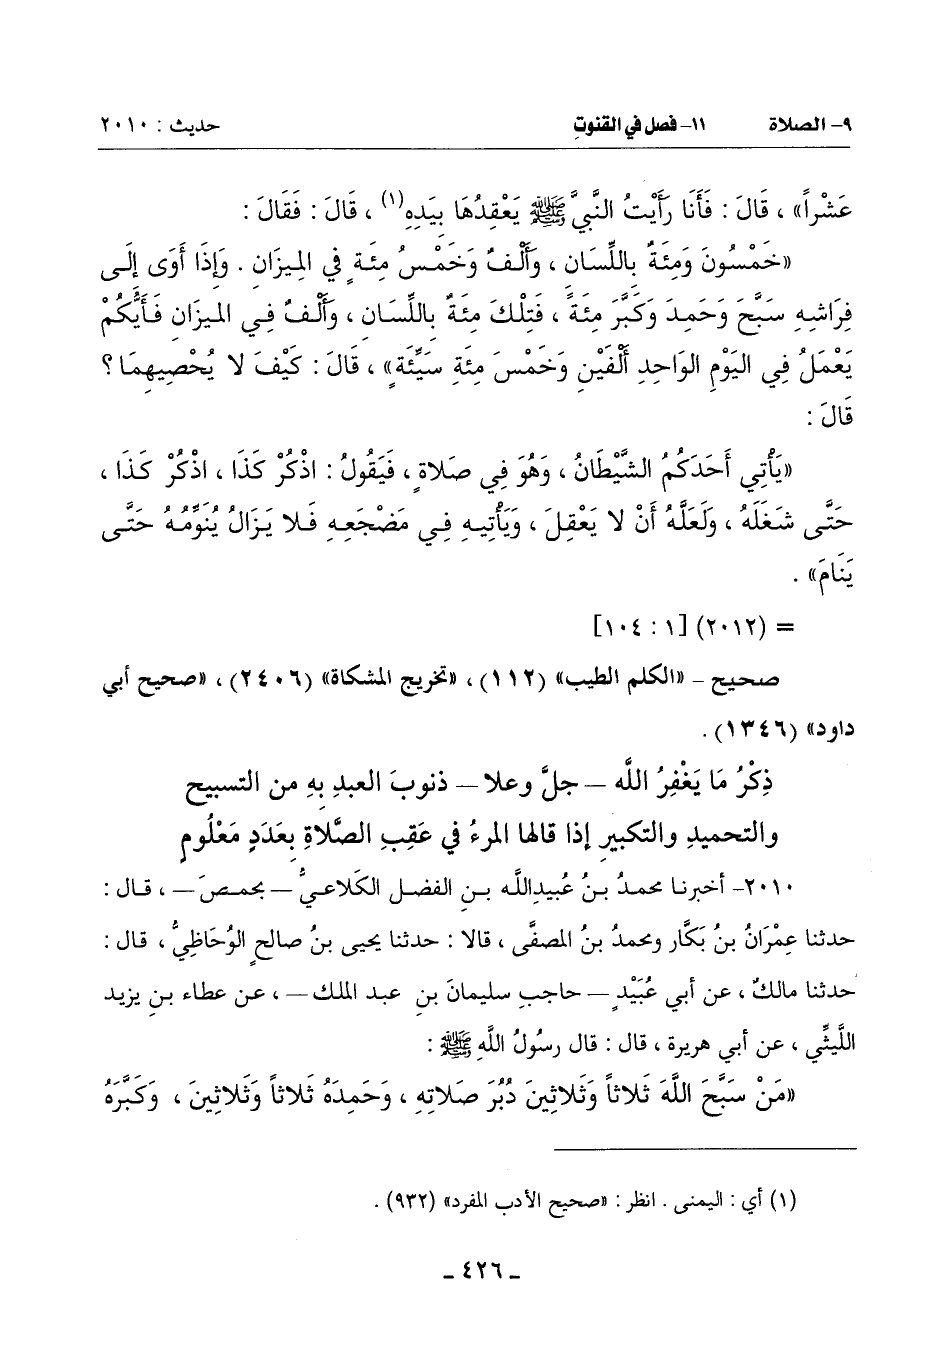 ٩- الصلاة ١١- فصل في القنوتِ حديث : ٢٠١٠
عَشْراً» ، قَالَ : فَأَنا رَأَيْتُ النَّبيَّ ﷺ يَعْقِدُهَا بِيَدِهِ(١) ، قَالَ : فَقَالَ :
«خَمْسُونَ وَمِئَةٌ باللِّسَان ، وَأَلْفٌ وَخَمْسُ مِئَة فِي المِيزَان . وَإِذَا أَوَى إِلَى
فِرَاشِهِ سَبَّحَ وَحَمِدَ وَكَبَّرَ مِئَةً ، فَتِلْكَ مِئَةٌ باللِّسَان ، وَأَلْفٌ فِي المِيزَان فَأَيُّكُمْ
يَعْمَلُ فِي اليَوْمِ الوَاحِدِ أَلْفَيْنِ وَخَمْسَ مِئَةِ سَيِّئَة» ، قَالَ : كَيْفَ لا يُحْصِيهِمَا ؟
قَالَ :
«يَأْتِي أَحَدَكُمُ الشَّيْطَانُ ، وَهُوَ فِي صَلاة ، فَيَقُولُ : اذْكُرْ كَذَا ، اذْكُرْ كَذَا ،
حَتَّى شَغَلَهُ ، وَلَعَلَّهُ أَنْ لا يَعْقِلَ ، وَيَأْتِيهِ فِي مَضْجَعِهِ فَلا يَزَالُ يُنَوِّمُهُ حَتَّى
يَنَامَ» .
= (٢٠١٢) [١ : ١٠٤]
صحيح – «الكلم الطيب» (١١٢) ، «تخريج المشكاة» (٢٤٠٦) ، «صحيح أبي
داود» (١٣٤٦) .
ذِكْرُ مَا يَغْفِرُ اللَّه – جلَّ وعلا – ذنوبَ العبدِ بِهِ من التسبيح
والتحميدِ والتكبيرِ إذا قالها المرءُ في عَقِبِ الصَّلاةِ بعَدَدٍ مَعْلُومٍ
٢٠١٠- أخبرنا محمدُ بنُ عُبيدِاللَّه بـن الفضل الكَلاعيُّ – بحمصَ – ، قال :
حدثنا عِمْرَانُ بنُ بَكَّار ومحمدُ بنُ المصفَّى ، قالا : حدثنا يحيى بنُ صالحٍ الوُحَاظِيُّ ، قال :
حدثنا مالكٌ ، عن أبي عُبَيْدٍ – حاجبِ سليمانَ بنِ عبد الملك – ، عن عطاء بن يزيد
اللَّيثِّي ، عن أبي هريرة ، قال : قال رسُولُ اللَّهِ ﷺ :
«مَنْ سَبَّحَ اللَّهَ ثَلاثاً وَثَلاثِينَ دُبُرَ صَلاتِهِ ، وَحَمِدَهُ ثَلاثاً وَثَلاثِينَ ، وَكَبَّرَهُ
(١) أي : اليمنى . انظر : «صحيح الأدب المفرد» (٩٣٢) .
ـ ٤٢٦ ـ